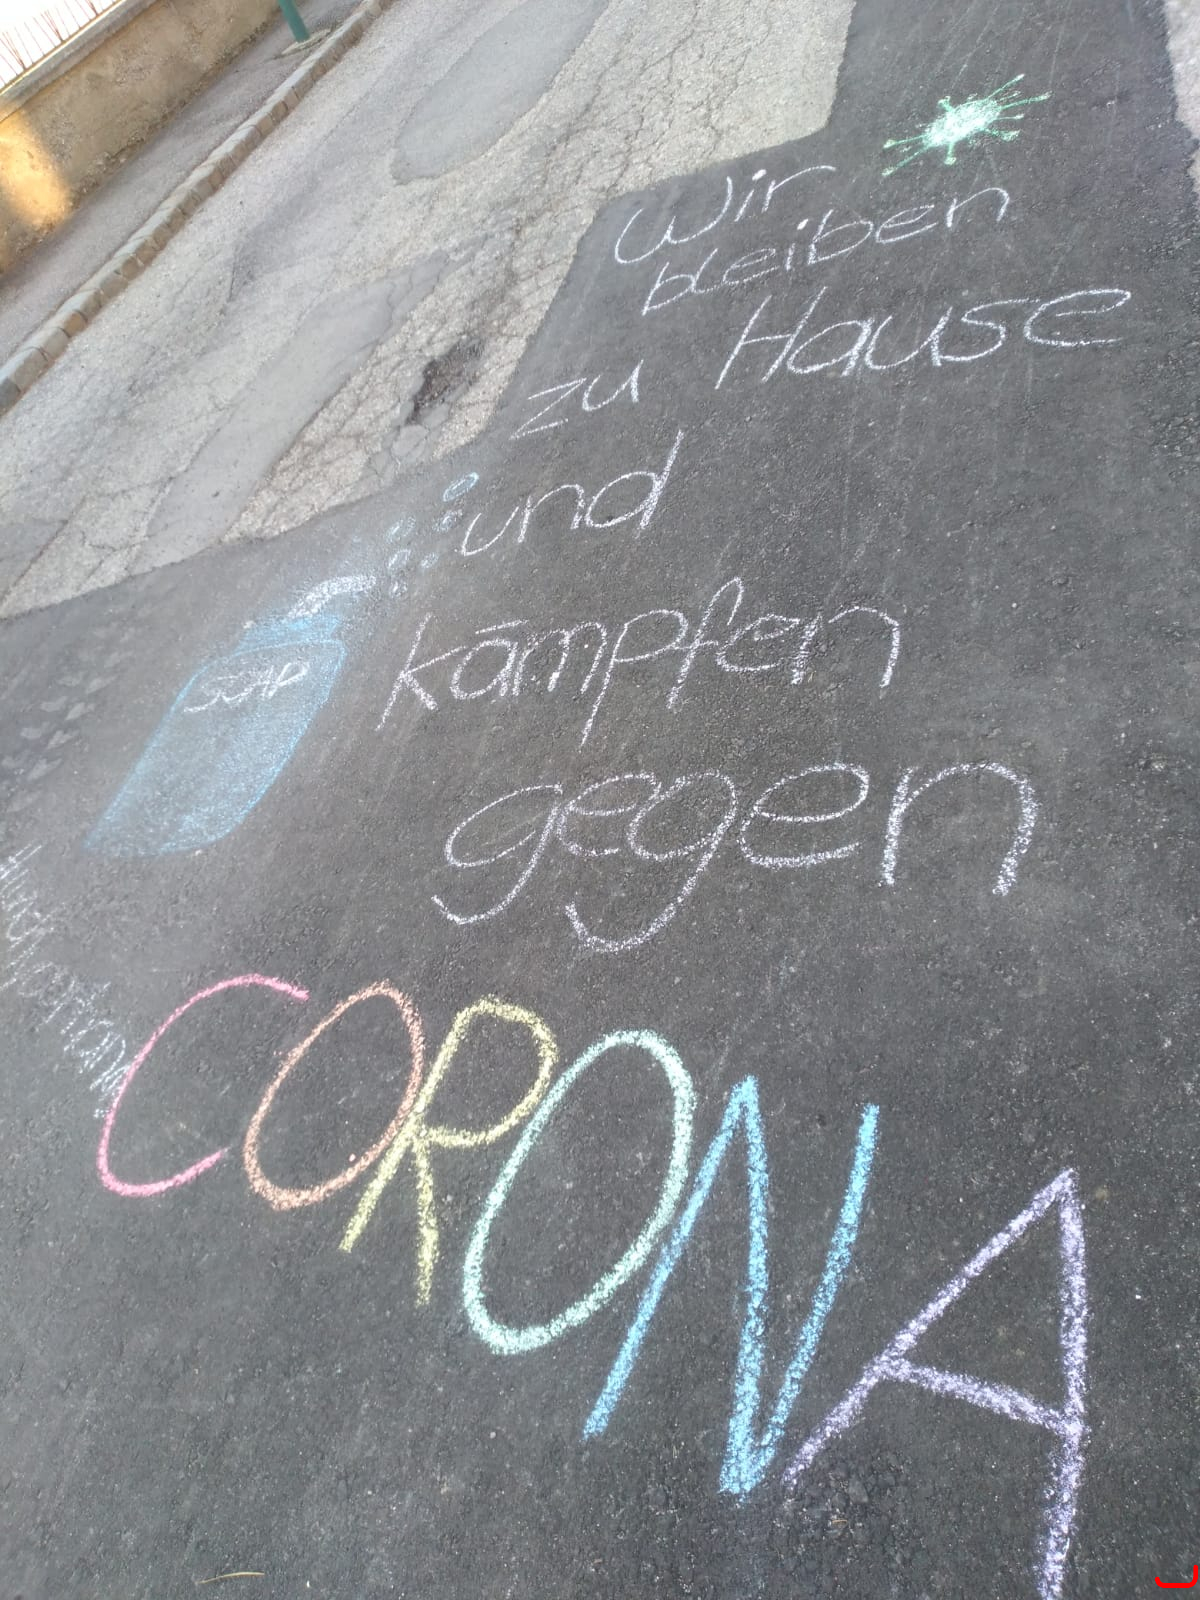 Wir
bleiben
zu Hause
und
kämpfen
gegen
CORONA
SOAP